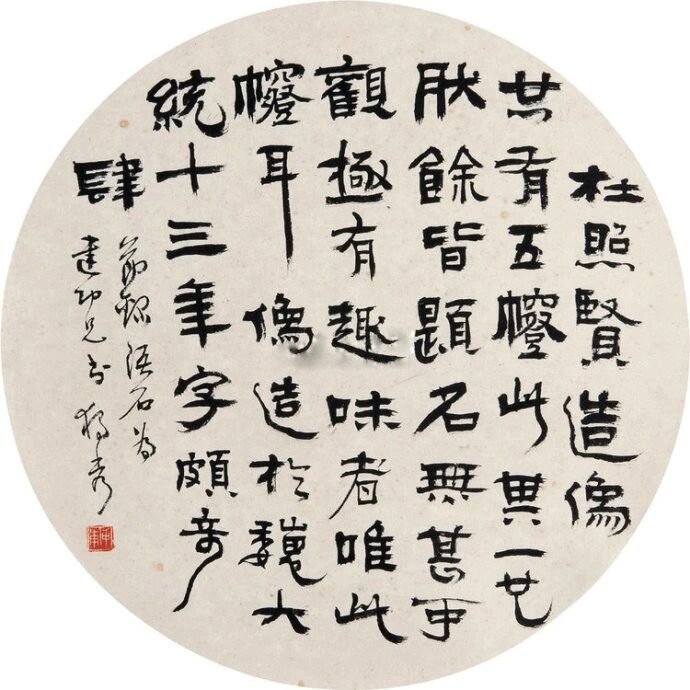 杜照賢造像
共有五此其一也
肰餘皆題名無甚可
觀極有趣味者唯此
耳 像造於魏大
統十三年字頗奇
肆
節錄語石為
建功兄書 獨秀